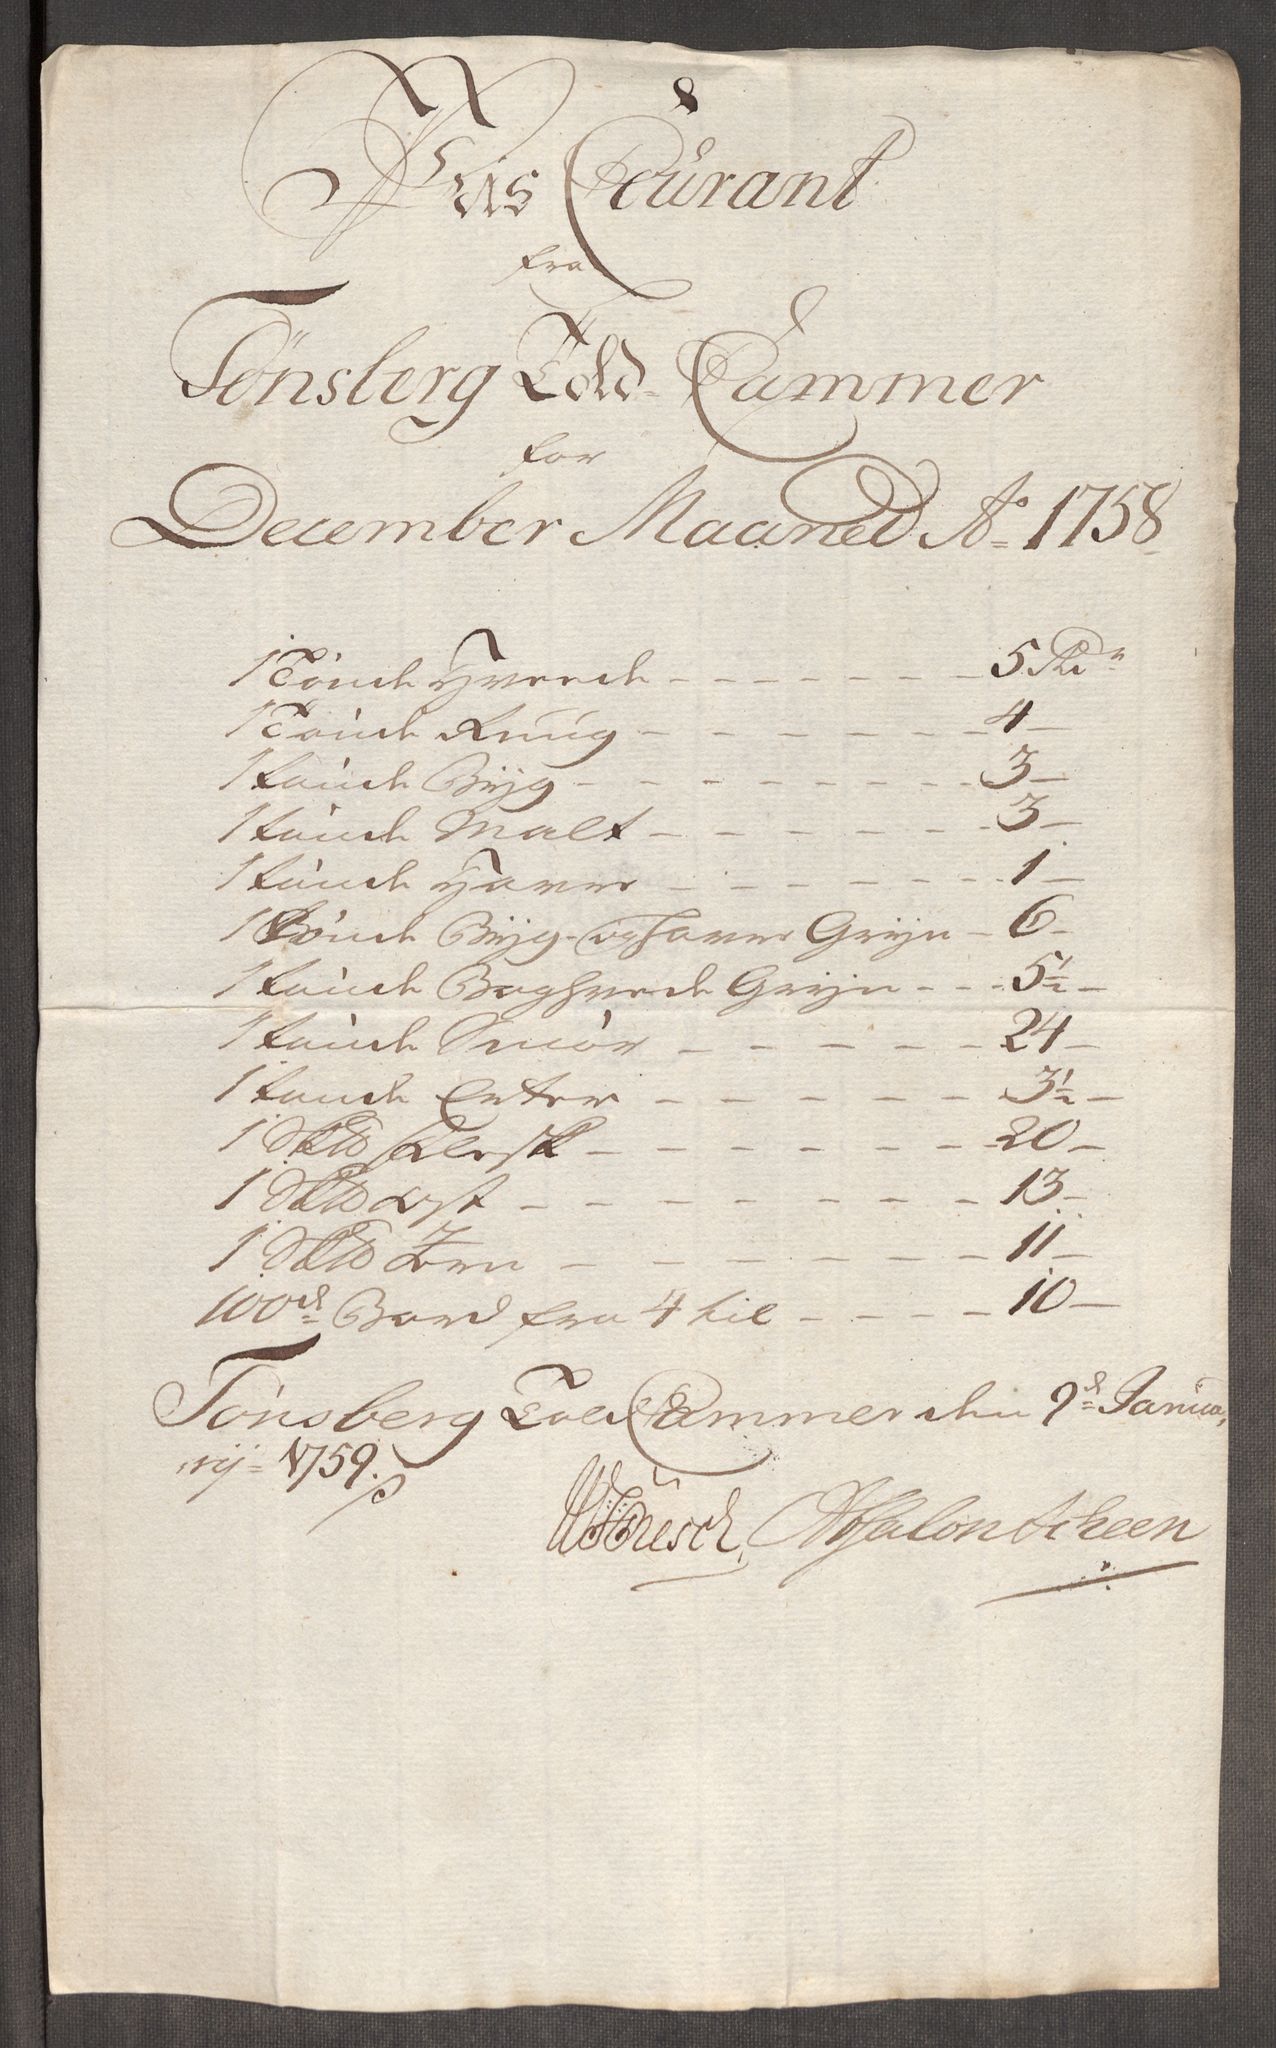 Priis Courant
fra
Tönsberg Told-Cammer
for
December Maaned Ao 1758
1 Tönde Hvede - - - - - - - 5 Rdr
1 Tönde Rüüg - - - - - - - 4 -
1 tönde Bÿg - - - - - - - - 3 -
1 tönde Malt - - - - - - - 3 -
1 tönde Havre - - - - - - - 1 -
1 Tönde Bÿg- og Havre Grÿn - 6 -
1 tönde Boghvede Grÿn - - - 5½ -
1 tönde Smör - - - - - - 24 -
1 tönde Erter - - - - - - 3½ -
1 Sk℔ flesk - - - - - - - 20 -
1 Sk℔ Ost - - - - - - - - 13 -
1 Sk℔ Jern - - - - - - - 11 -
100de Bord fra 4 til - - - - 10 -
Tönsberg Told Cammer den 9d Janua,
rij 1759.
Büesch, Absalon Scheen